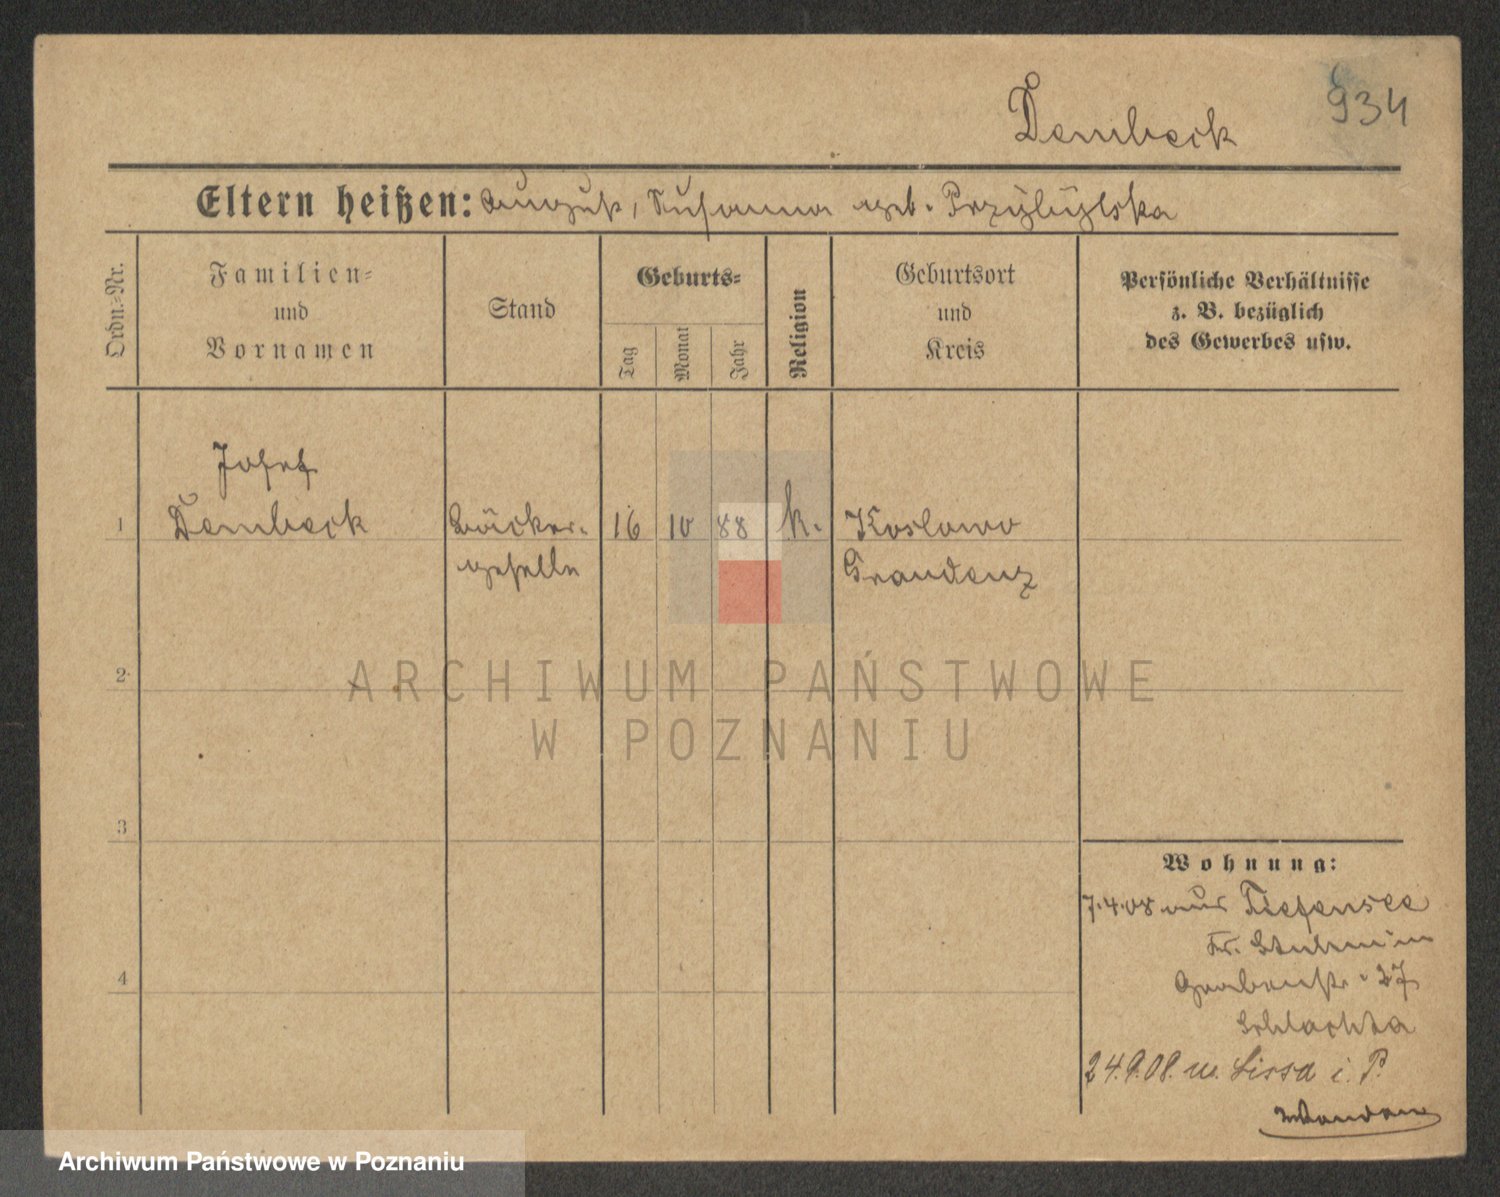 934
Dembeck
Eltern heißen: August, Susanna geb. Przybylska
Ordn.-Nr.
Familien-
und
Vornamen
Stand
Geburts-
Tag
Monat
Jahr
Religion
Geburtsort
und
Kreis
Persönliche Verhältnisse
z. B. bezüglich
des Gewerbes usw.
Josef
1 Dembeck Bäcker- 16 10 88 k. Koslowo
geselle Graudenz
2
ARCHIWUM PAŃSTWOWE
W POZNANIU
3
Wohnung:
7.4.08 aus Tiefensee
Kr. Stuhm in
Grabenstr. 27
Schlachta
4
24.9.08. n. Lissa i. P.
Archiwum Państwowe w Poznaniu